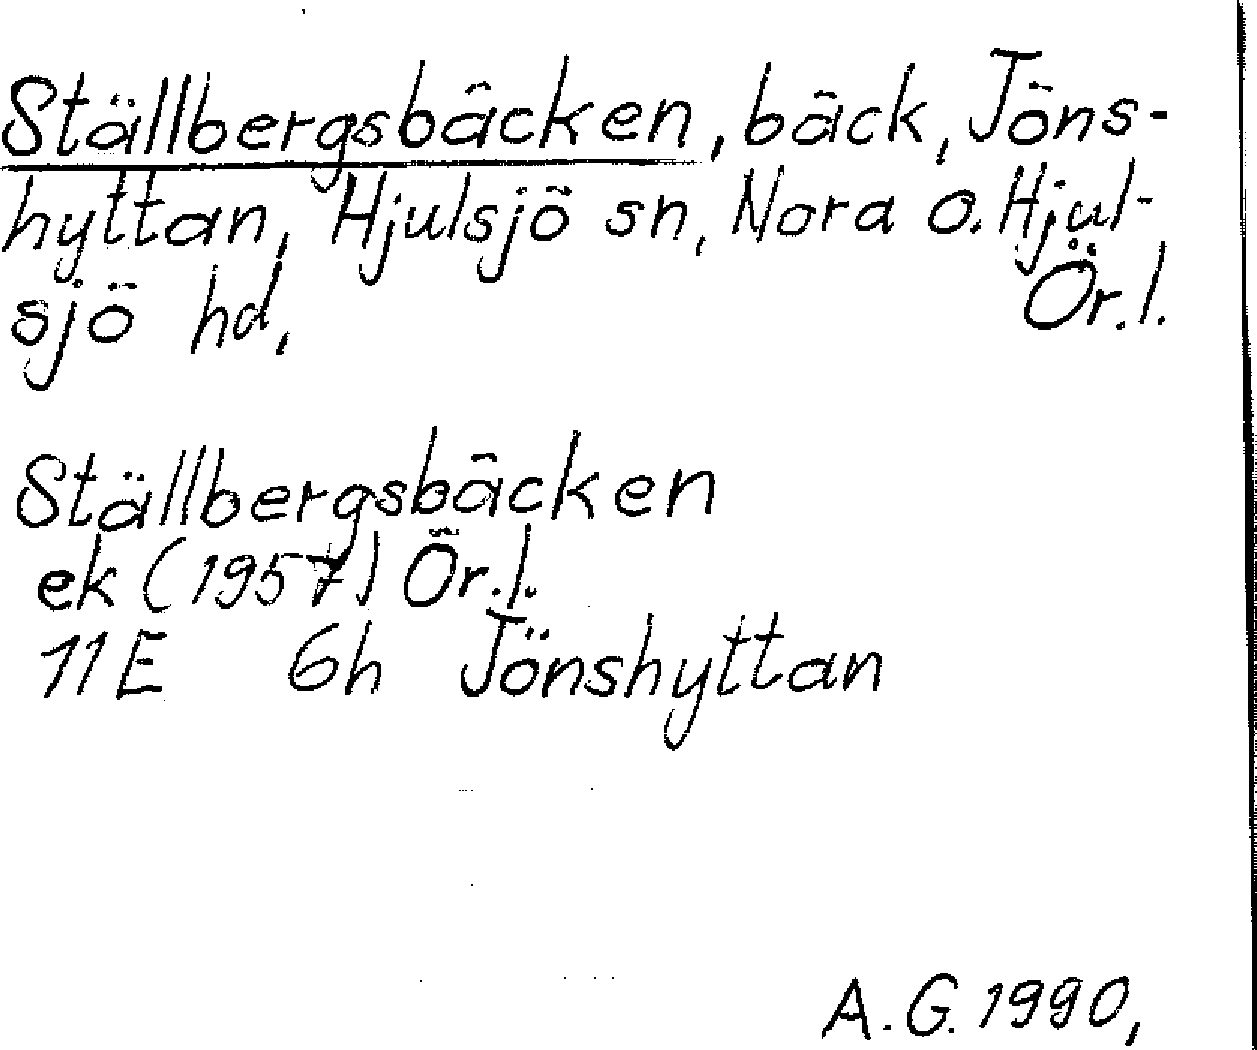 Ställbergsbäcken, bäck, Jöns-
hyttan, Hjulsjö sn, Nora o. Hjul-
sjö hd, Ör.l.
Ställbergsbäcken
ek (1957) Ör.l.
11E 6h Jönshyttan
A.G. 1990,